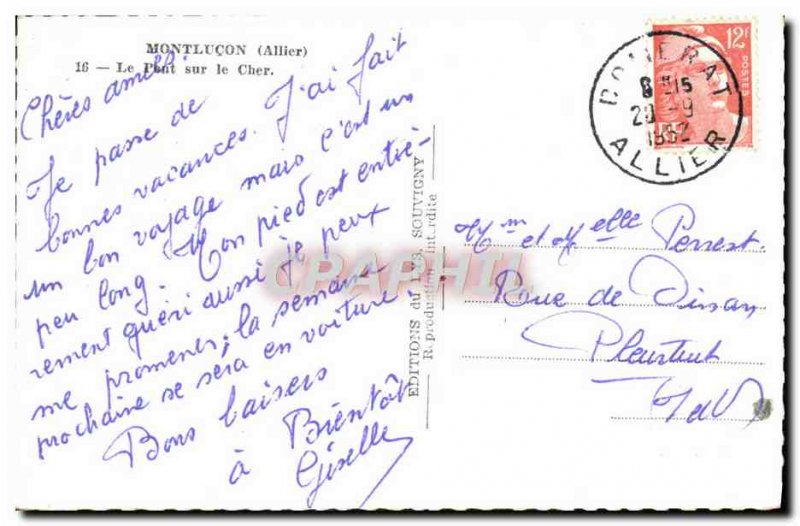 MONTLUÇON (Allier)
16 — Le Pont sur le Cher.
Chères amies
Je passe de
bonnes vacances. J'ai fait
un bon voyage mais c'est un
peu long. Mon pied est entiè-
rement guéri aussi je peux
me promener, la semaine
prochaine se sera en voiture.
Bons baisers
à Bientôt
Giselle
EDITIONS du LYS, SOUVIGNY
Reproduction interdite
CPAPHIL
12F
POSTES
DOMERAT
8H15
20-9
1952
ALLIER
et Melle Perrest.
Rue de Dinan
Pleurtuit
I et V